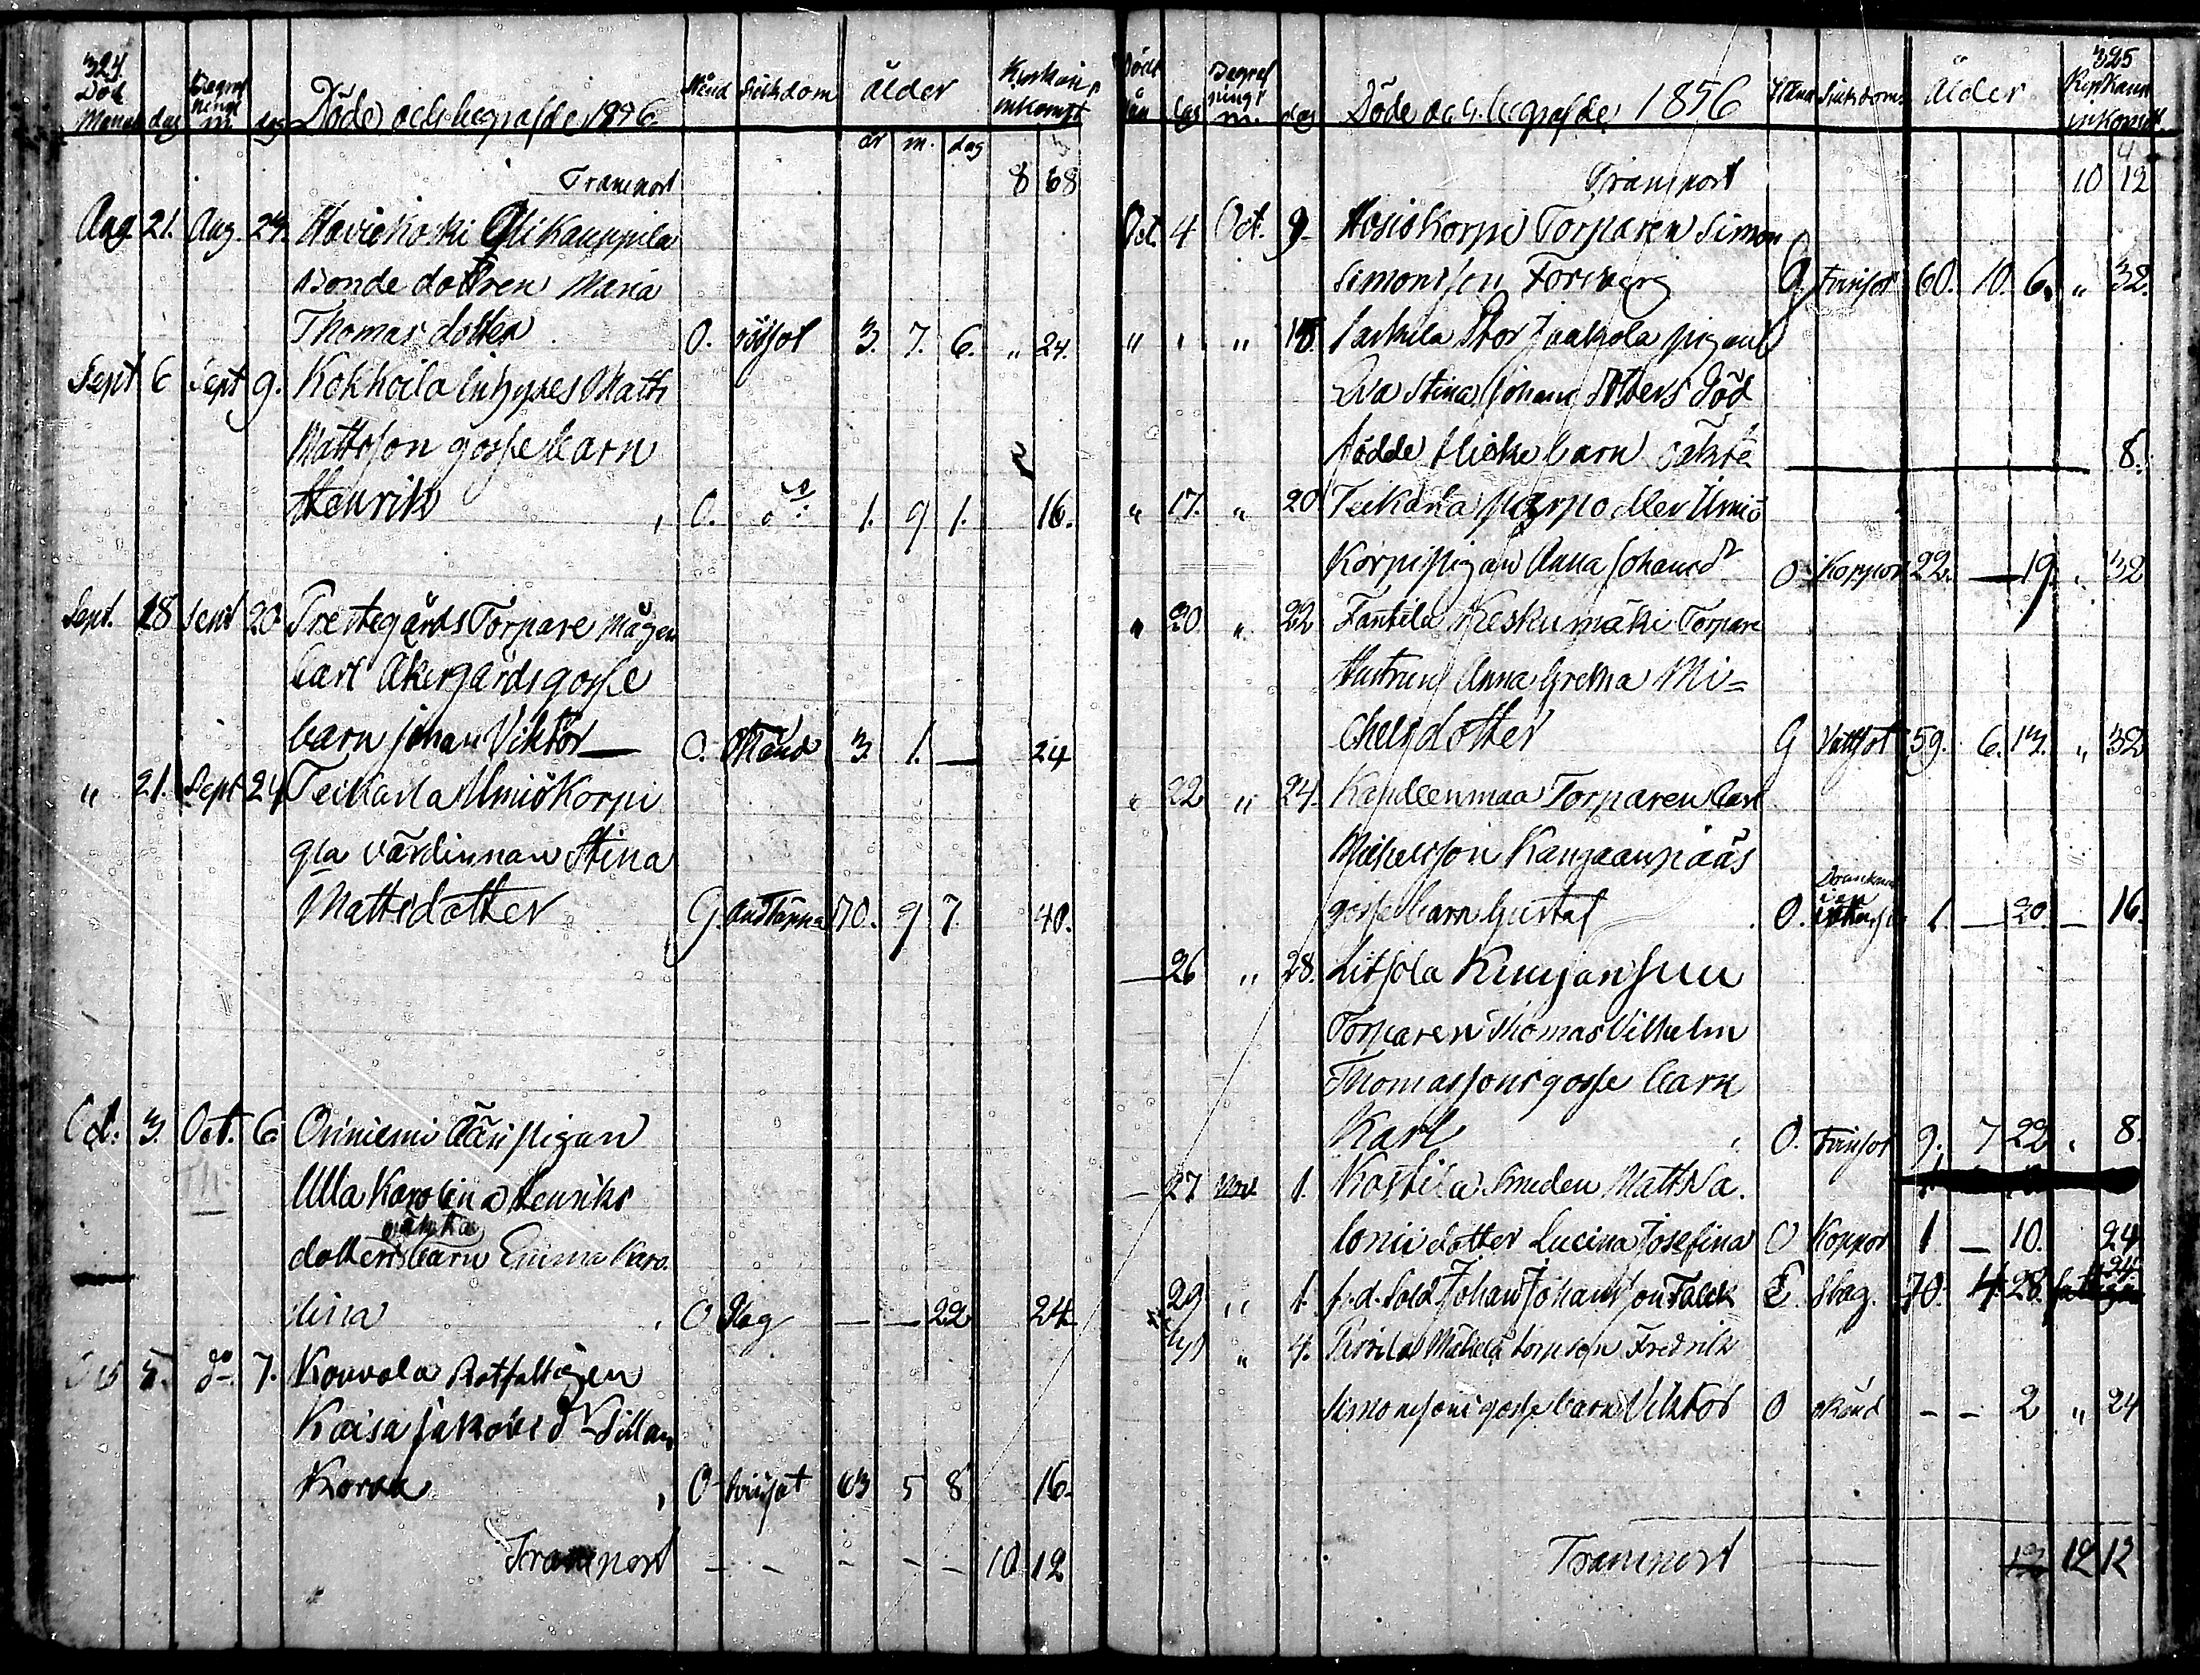 324.
Död Begraf
Månad dag m. dag Döde och begrafde 1856. Stånd Sjukdom ålder Kyrkans inkomst
år m. dag
Transport 8 68
Aug 21. Aug. 24. Havickoski Ylikauppila
Bonde dottren Maria
Thomas dotter O. rödsot 3. 7. 6. " 24.
Sept 6 Sept 9. Kokkoila Inhyses Matts
Mattsson gossebarn
Henrik O. do 1. 9 1. 16.
Sept. 18 Sept 20. Prestegårds Torpare mågen
Carl Åkergårds gosse
barn Johan Viktor O. Okänd 3. 1. — 24
" 21. Sept 24 Teikarla Umiökorpi
gla värdinnan Stina
Mattsdotter G. Andtäppa 70. 9 7. 40.
Oct. 3. Oct. 6. Oriniemi Pigan
Ulla Karolina Henriks
dotters oäkta barn Emma Karo
lina O Slag — — 22 24.
5. do 7. Kouvola Rotfattigen
Kaisa Jakobs dr Sillan
Korva O 63 5 8 16.
Transport — — — — — 10 12
325
Död Begrafnings
dag m. dag Döde och begrafde 1856 Stånd Sjukdom Ålder Kyrkans inkomst
Transport 10 12
Oct. 4 Oct. 9. Hosiokorpi Torparen Simon
Simonsson Forsberg G 60. 10. 6. " 32.
" " " 18. Stor Jaakola pigan
Eva Stina Johans dotters död
födde flicke barn oäkta 8.
" 17. " 20 Teikarla eller Umiö
Korpi pigan Anna Johansdr O. Koppor 22. — 19. " 32
" 20. " 22 Fantila Keskumäki Torpare
Hustrun Anna Gretha Mi=
chelsdotter G Vattsot 59. 6. 13. " 32
" 22 " 24. Kandeenmaa Torparen Carl
Michelsson Kangaanpääs
gossebarn Gustaf O. 1. — 20. — 16.
— 26 " 28. Litsola
Torparen Thomas Vilhelm
Thomassons gosse barn
Karl O. 9. 7 22 " 8.
— 27 Nov. 1. Kostila Smeden Matts Sa.
lonii dotter Lucina Josefina O Koppor 1 — 10. 24
29 " 1. f.d. Sold Johan Johansson Falck E. Slag. 70. 4. 28. 24
31 " 4. Mäkelä Fredrik
Simonsons gosse barn Viktor O okänd — — 2 " 24
Transport 12 12